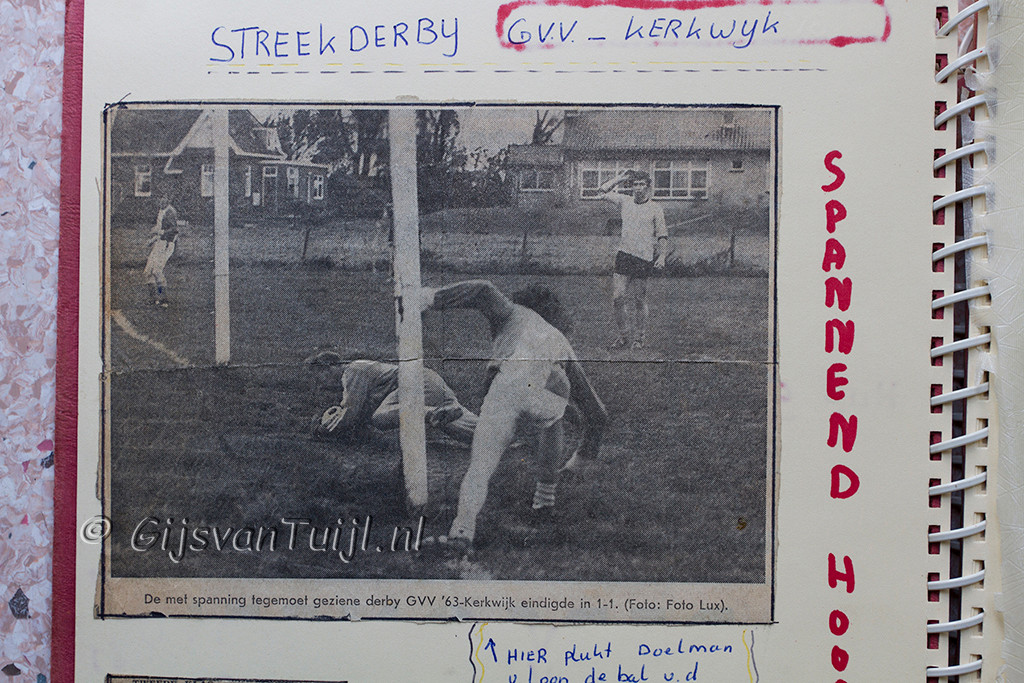 STREEK DERBY GVV. - KERKWYK
SPANNEND HOO
© GijsvanTuijl.nl
De met spanning tegemoet geziene derby GVV '63-Kerkwijk eindigde in 1-1. (Foto: Foto Lux).
↑ HIER plukt Doelman
v loon de bal v.d